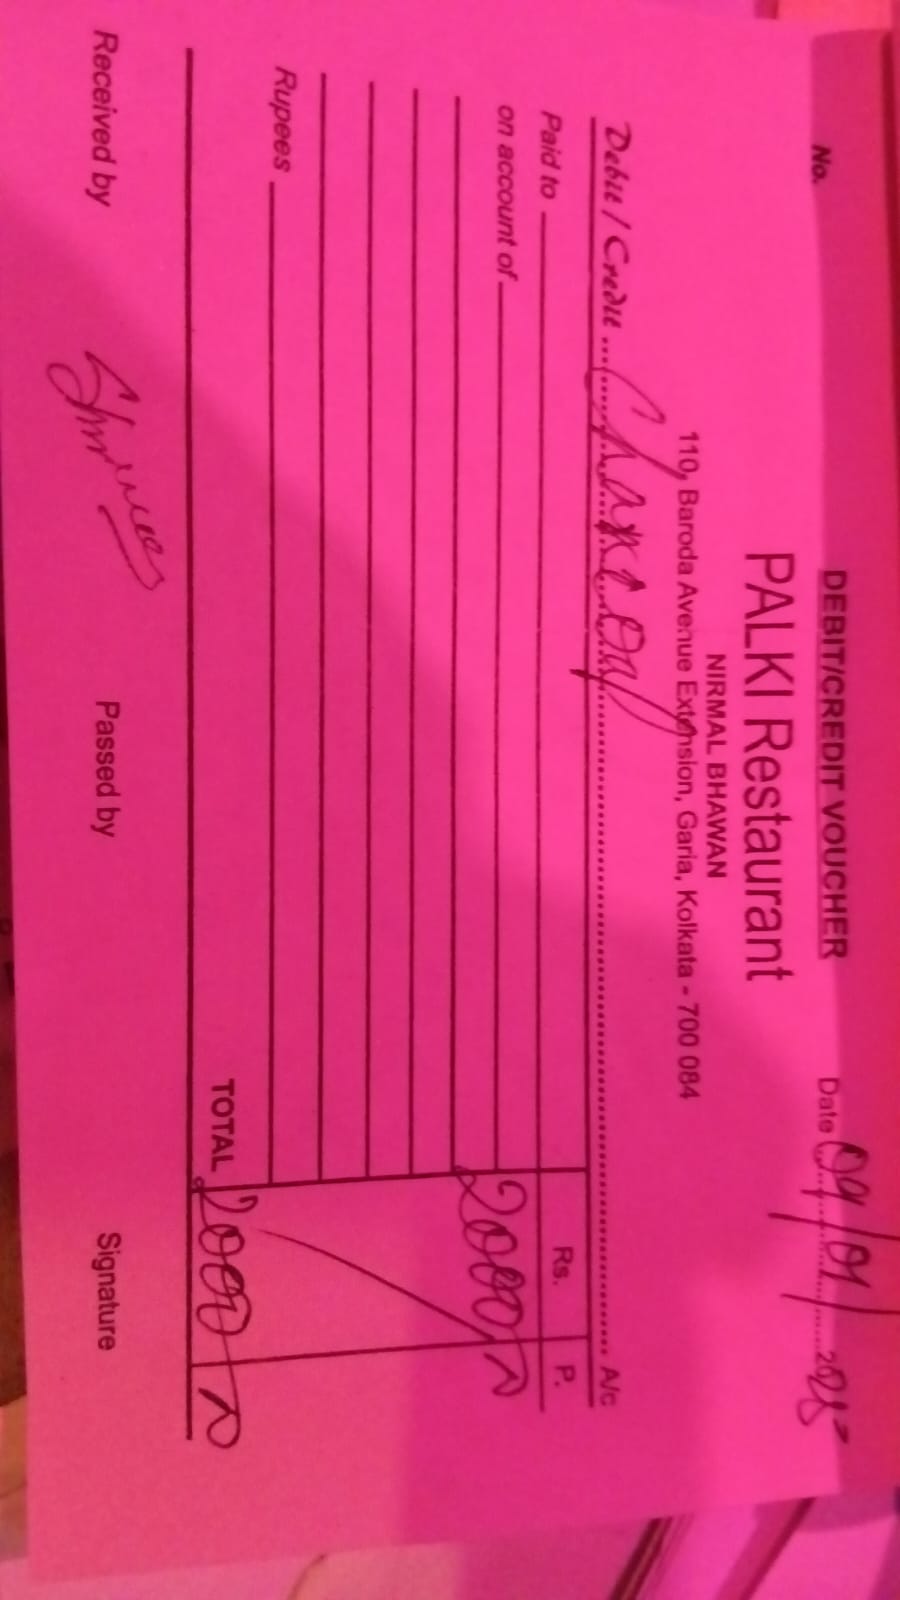 DEBIT/CREDIT VOUCHER
No. Date 09/01/2025
PALKI Restaurant
NIRMAL BHAWAN
110, Baroda Avenue Extension, Garia, Kolkata - 700 084
Debit / Credit A/c
Paid to Rs. P.
on account of 2000
Rupees
TOTAL 2000
Received by Passed by Signature